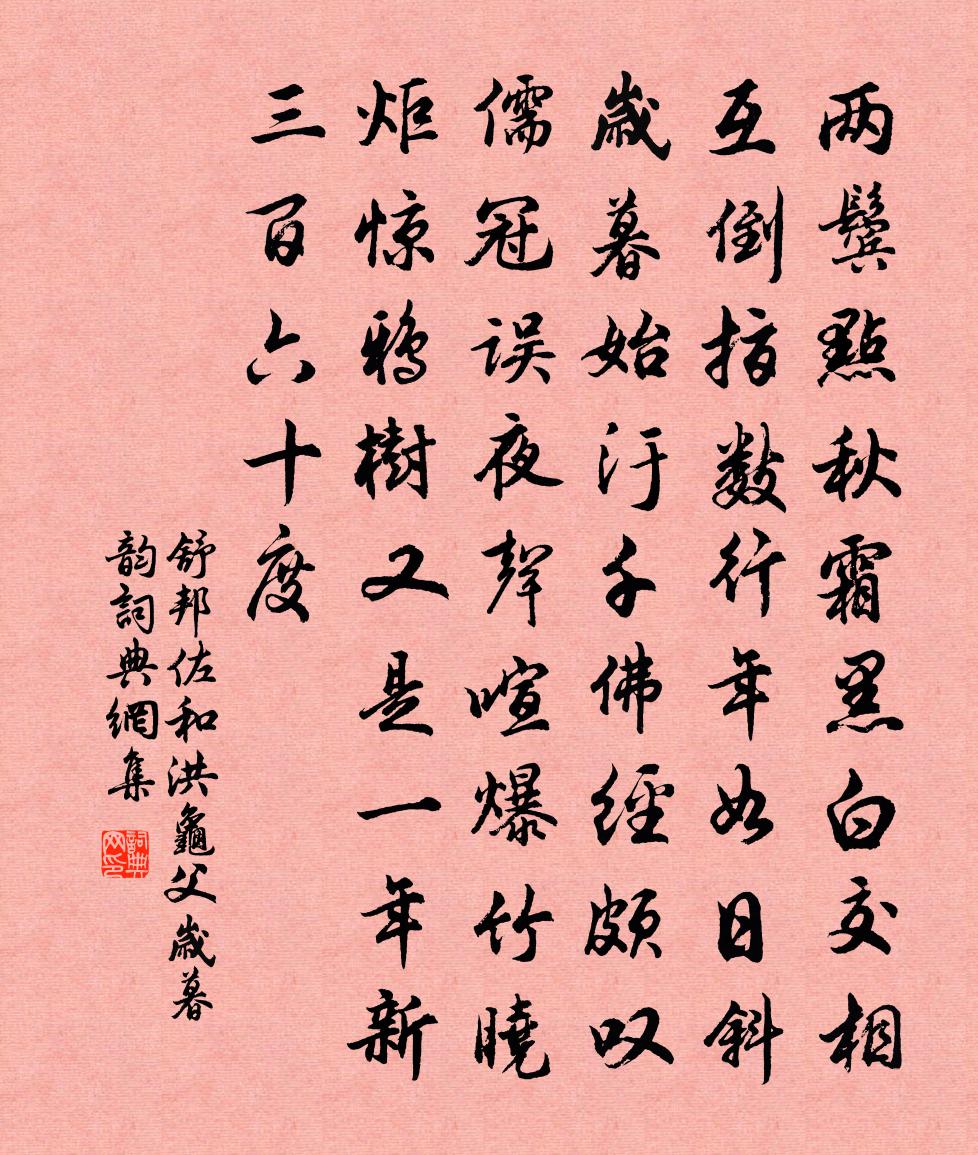 两鬓點秋霜黑白交相
互倒指数行年如日斜
歲暮始汙千佛經頗叹
儒冠误夜聲喧爆竹曉
炬惊鴉樹又是一年新
三百六十度
舒邦佐和洪龜父歲暮
韵詞典網集
詞典网印